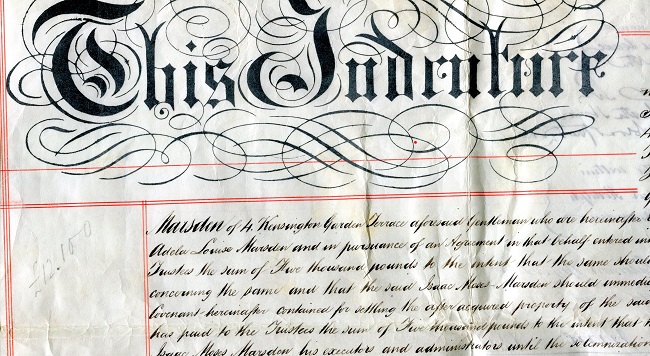 This Indenture
Marsden of 4 Kensington Garden Terrace aforesaid Gentleman who are hereinafter
Adela Louise Marsden and in pursuance of an Agreement in that behalf entered in
Trustees the sum of Five thousand pounds to the intent that the same should
concerning the same and that the said Isaac Moses Marsden should immedi
Covenant hereinafter contained for settling the after acquired property of the said
has paid to the Trustees the sum of Five thousand pounds to the intent that
Isaac Moses Marsden his executors and administrators until the solemnization
£12.10.0